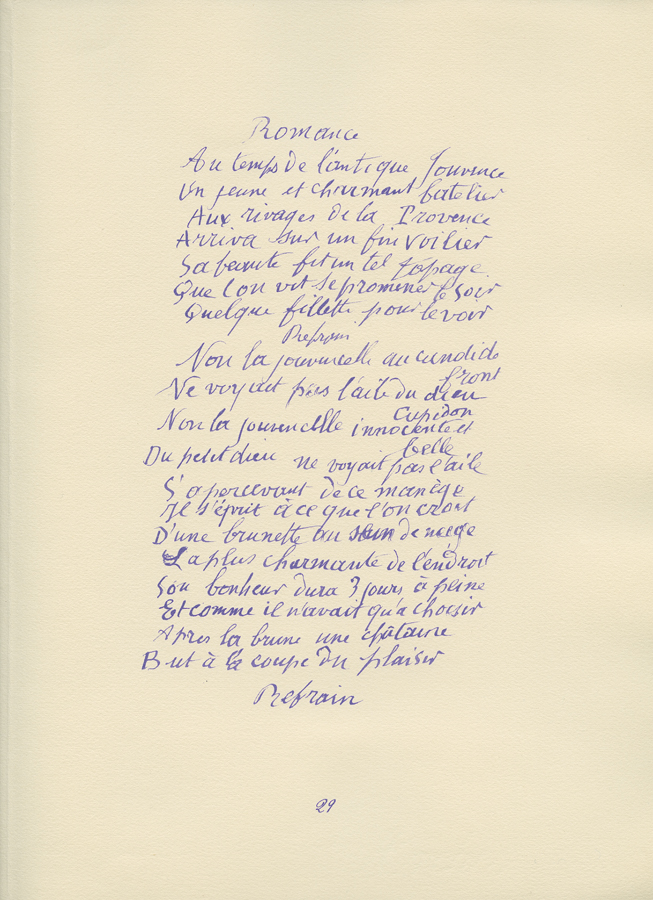 Romance
Au temps de l'antique Jouvence
Un jeune et charmant batelier
Aux rivages de la Provence
Arriva sur un fin voilier
Sa beauté fit un tel tapage
Que l'on vit se promener le soir
Quelque fillette pour le voir
Refrain
Non la jouvencelle au candide
front
Ne voyait pas l'aile du dieu
Cupidon
Non la jouvencelle innocente et
belle
Du petit dieu ne voyait pas l'aile
S'apercevant de ce manège
Il s'éprit à ce que l'on croit
D'une brunette au sein de neige
La plus charmante de l'endroit
Son bonheur dura 3 jours à peine
Et comme il n'avait qu'à choisir
Après la brune une châtaine
But à la coupe du plaisir
Refrain
29